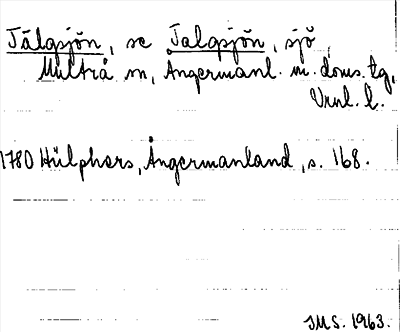 Jälgsjön, se Jalgsjön, sjö,
Multrå sn, Ångermanl. m. doms. tg,
Vrnl. l.
1780 Hülphers, Ångermanland, s. 168.
JMS. 1963.